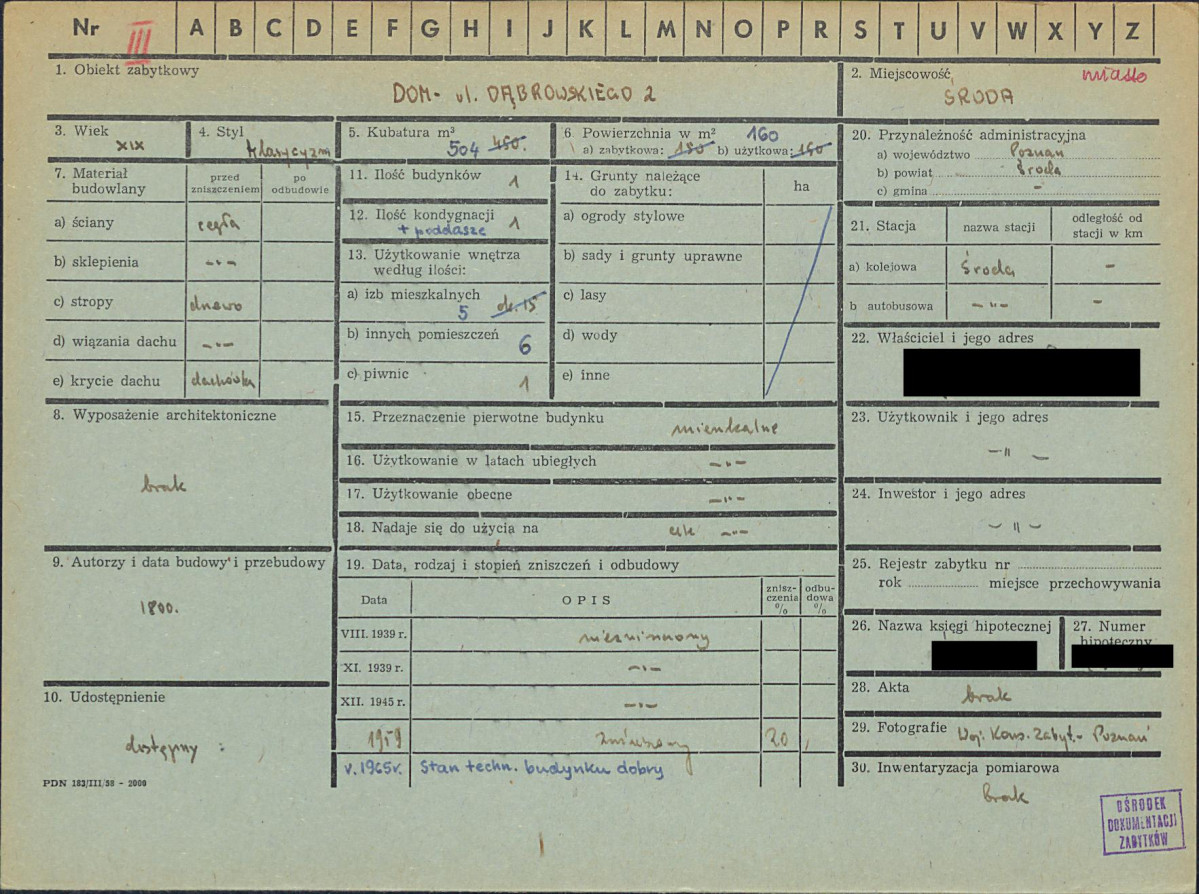 Nr III A B C D E F G H I J K L M N O P R S T U V W X Y Z
1. Obiekt zabytkowy
DOM - ul. DĄBROWSKIEGO 2
2. Miejscowość miasto
ŚRODA
3. Wiek
XIX
4. Styl
klasycyzm
5. Kubatura m³
504 480.
6. Powierzchnia w m² 160
a) zabytkowa: 180 b) użytkowa: 160
7. Materiał budowlany
przed zniszczeniem
po odbudowie
a) ściany cegła
b) sklepienia -"-
c) stropy drewo
d) wiązania dachu -"-
e) krycie dachu dachówka
8. Wyposażenie architektoniczne
brak
9. Autorzy i data budowy i przebudowy
1800.
10. Udostępnienie
dostępny :
PDN 183/III/58 - 2000
11. Ilość budynków 1
12. Ilość kondygnacji 1
+ poddasze
13. Użytkowanie wnętrza
według ilości:
a) izb mieszkalnych
5 ok. 15
b) innych pomieszczeń
6
c) piwnic 1
14. Grunty należące
do zabytku:
ha
a) ogrody stylowe
b) sady i grunty uprawne
c) lasy
d) wody
e) inne
15. Przeznaczenie pierwotne budynku
mieszkalne
16. Użytkowanie w latach ubiegłych -"-
17. Użytkowanie obecne -"-
18. Nadaje się do użycia na -"-
19. Data, rodzaj i stopień zniszczeń i odbudowy
Data OPIS znisz-czenia % odbu-dowa %
VIII. 1939 r. niezniszczony
XI. 1939 r. -"-
XII. 1945 r. -"-
1959 zniszczony 20
v. 1965r. Stan techn. budynku dobry
20. Przynależność administracyjna
a) województwo Poznań
b) powiat Środa
c) gmina -
21. Stacja
nazwa stacji
odległość od stacji w km
a) kolejowa Środa -
b autobusowa -"- -
22. Właściciel i jego adres
23. Użytkownik i jego adres
-"-
24. Inwestor i jego adres
-"-
25. Rejestr zabytku nr
rok miejsce przechowywania
26. Nazwa księgi hipotecznej
27. Numer
hipoteczny
28. Akta
brak
29. Fotografie Woj. Kons. Zabyt. - Poznań
30. Inwentaryzacja pomiarowa
brak
OŚRODEK
DOKUMENTACJI
ZABYTKÓW